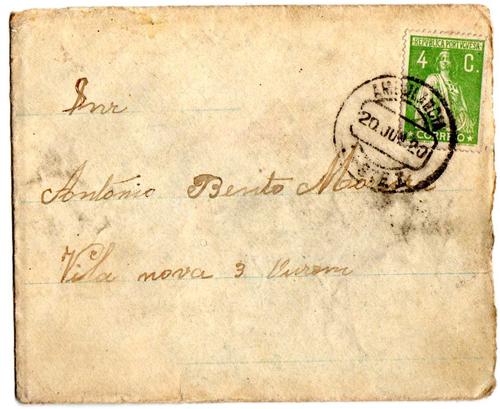 REPUBLICA PORTUGUESA
4 C.
CORREIO
AMBULANCIA
20 JUN 20
Snr
António Bento
Vila nova